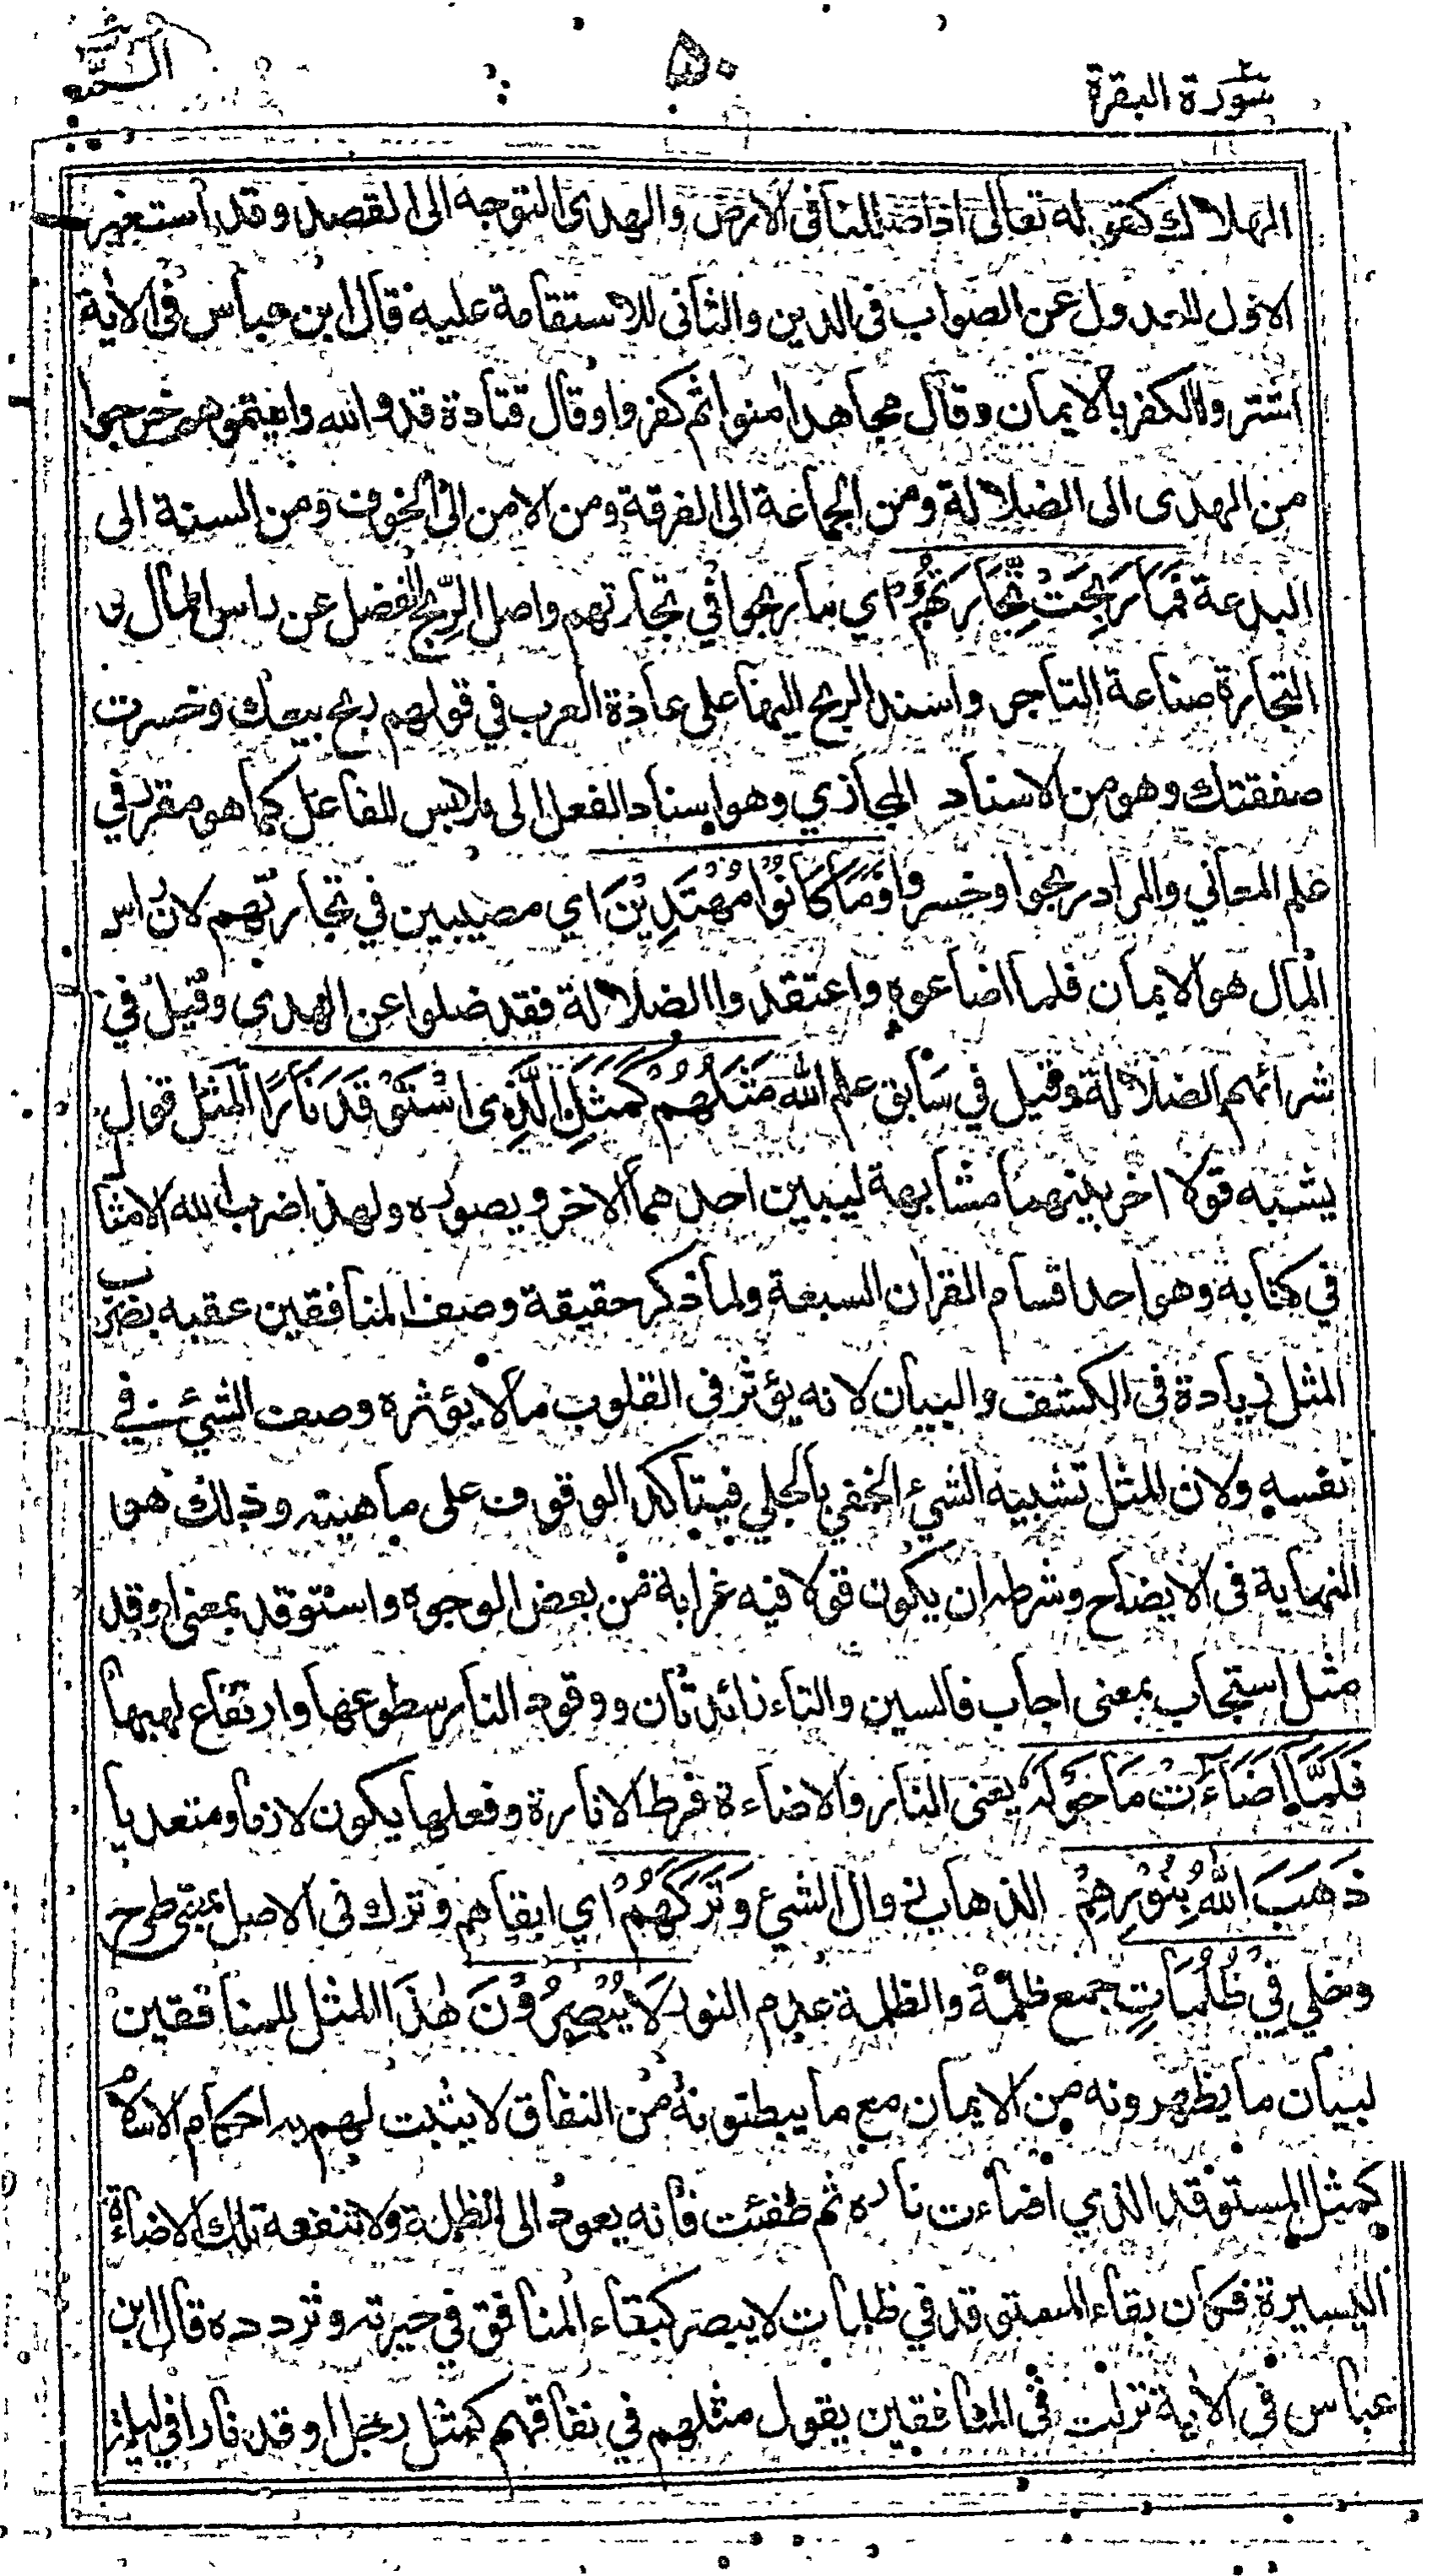 سورة البقرة
۵۰
الٓمّٓ
الهلاك كقوله تعالى اذا ضللنا فى الارض والهدى التوجه الى القصد وقد استعير
الاول للعدول عن الصواب فى الدين والثانى للاستقامة عليه قال ابن عباس فى الاية
اشتروا الكفر بالايمان وقال مجاهد امنوا ثم كفروا وقال قتادة قد والله رايتموهم خرجوا
من الهدى الى الضلالة ومن الجماعة الى الفرقة ومن الامن الى الخوف ومن السنة الى
البدعة فَمَا رَبِحَتْ تِّجَارَتُهُمْ اي ما ربحوا في تجارتهم واصل الربح الفضل عن راس المال و
التجارة صناعة التاجر واسند الربح اليها على عادة العرب في قولهم ربح بيعك وخسرت
صفقتك وهو من الاسناد المجازي وهو اسناد الفعل الى ملابس للفاعل كما هو مقرر في
علم المعاني والمراد ربحوا وخسروا وَمَا كَانُوْا مُهْتَدِيْنَ اي مصيبين في تجارتهم لان راس
المال هو الايمان فلما اضاعوه واعتقدوا الضلالة فقد ضلوا عن الهدى وقيل في
شرائهم الضلالة وقيل في سابق علم الله مَثَلُهُمْ كَمَثَلِ الَّذِى اسْتَوْقَدَ نَارًا المثل قول
يشبه قولا اخر بينهما مشابهة ليبين احدهما الاخر ويصوره ولهذا ضرب الله الامثال
في كتابه وهو احد اقسام القران السبعة ولما ذكر حقيقة وصف المنافقين عقبه بضرب
المثل زيادة فى الكشف والبيان لانه يؤثر فى القلوب ما لا يؤثره وصف الشيء في
نفسه ولان المثل تشبيه الشيء الخفي بالجلي فيتاكد الوقوف على ماهيته وذلك هو
النهاية فى الايضاح وشرطه ان يكون قولا فيه غرابة من بعض الوجوه واستوقد بمعنى اوقد
مثل استجاب بمعنى اجاب فالسين والتاء زائدتان ووقود النار سطوعها وارتفاع لهبها
فَلَمَّا اَضَاءَتْ مَا حَوْلَهٗ يعنى النار والاضاءة فرط الانارة وفعلها يكون لازما ومتعديا
ذَهَبَ اللّٰهُ بِنُوْرِهِمْ الذهاب زوال الشيء وَتَرَكَهُمْ اي ابقاهم وترك فى الاصل بمعنى طرح
وخلي فِيْ ظُلُمَاتٍ جمع ظلمة والظلمة عدم النور لَا يُبْصِرُوْنَ هذا المثل للمنافقين
لبيان ما يظهرونه من الايمان مع ما يبطنونه من النفاق لا يثبت لهم به احكام الاسلام
كمثل المستوقد الذي اضاءت ناره ثم طفئت فانه يعود الى الظلمة ولا تنفعه تلك الاضاءة
اليسيرة فكان بقاء المستوقد في ظلمات لا يبصر كبقاء المنافق في حيرته وتردده قال ابن
عباس فى الاية نزلت فى المنافقين يقول مثلهم في نفاقهم كمثل رجل اوقد نارا في ليلة